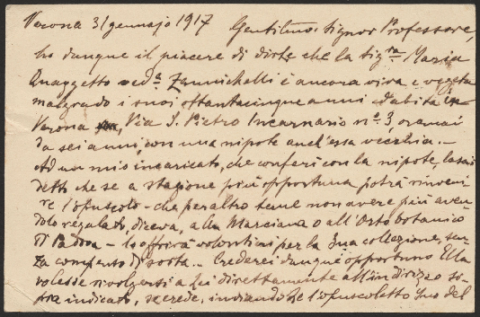 Verona 31 gennajo 1917 Gentilmo: Signor Professore,
ho dunque il piacere di dirle che la Sigra Maria
Quaggetto ved.a Zannichelli è ancora viva e vegeta
malgrado i suoi ottantacinque anni ed abita in
Verona Via S. Pietro Incarnario nº 3, oramai
da sei anni, con una nipote anch'essa vecchia.-
Ad un mio incaricato, che conferì con la nipote, lasciò
detto che se a stagione più opportuna potrà rinveni-
re l'opuscolo - che peraltro teme non avere più aven-
dolo regalato, diceva, alla Marciana o all'Orto botanico
di Padova - lo offrirà volentieri per la Sua collezione, sen-
za compenso di sorta.- Crederei dunque opportuno Ella
volesse rivolgersi a Lei direttamente all'indirizzo so-
pra indicato, se crede, inviandole l'opuscoletto Suo del